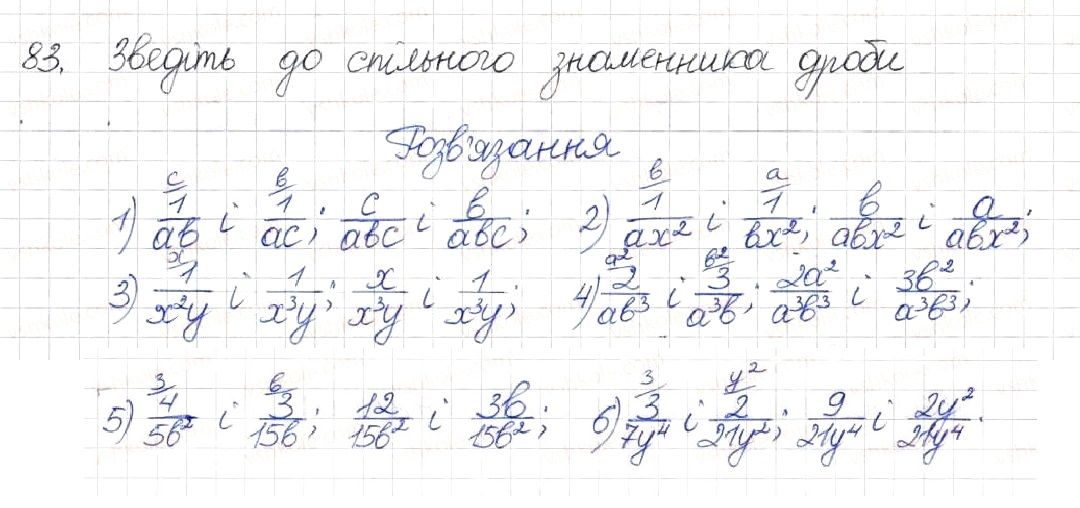 83. Зведіть до спільного знаменника дроби
Розв'язання
1) \frac{1}{ab}^{\frac{c}{}} і \frac{1}{ac}^{\frac{b}{}}; \frac{c}{abc} і \frac{b}{abc}; 2) \frac{1}{ax^2}^{\frac{b}{}} і \frac{1}{bx^2}^{\frac{a}{}}; \frac{b}{abx^2} і \frac{a}{abx^2};
3) \frac{1}{x^2y}^{\frac{x}{}} і \frac{1}{x^3y}; \frac{x}{x^3y} і \frac{1}{x^3y}; 4) \frac{2}{ab^3}^{\frac{a^2}{}} і \frac{3}{a^3b}^{\frac{b^2}{}}; \frac{2a^2}{a^3b^3} і \frac{3b^2}{a^3b^3};
5) \frac{4}{5b^2}^{\frac{3}{}} і \frac{3}{15b}^{\frac{b}{}}; \frac{12}{15b^2} і \frac{3b}{15b^2}; 6) \frac{3}{7y^4}^{\frac{3}{}} і \frac{2}{21y^2}^{\frac{y^2}{}}; \frac{9}{21y^4} і \frac{2y^2}{21y^4}.